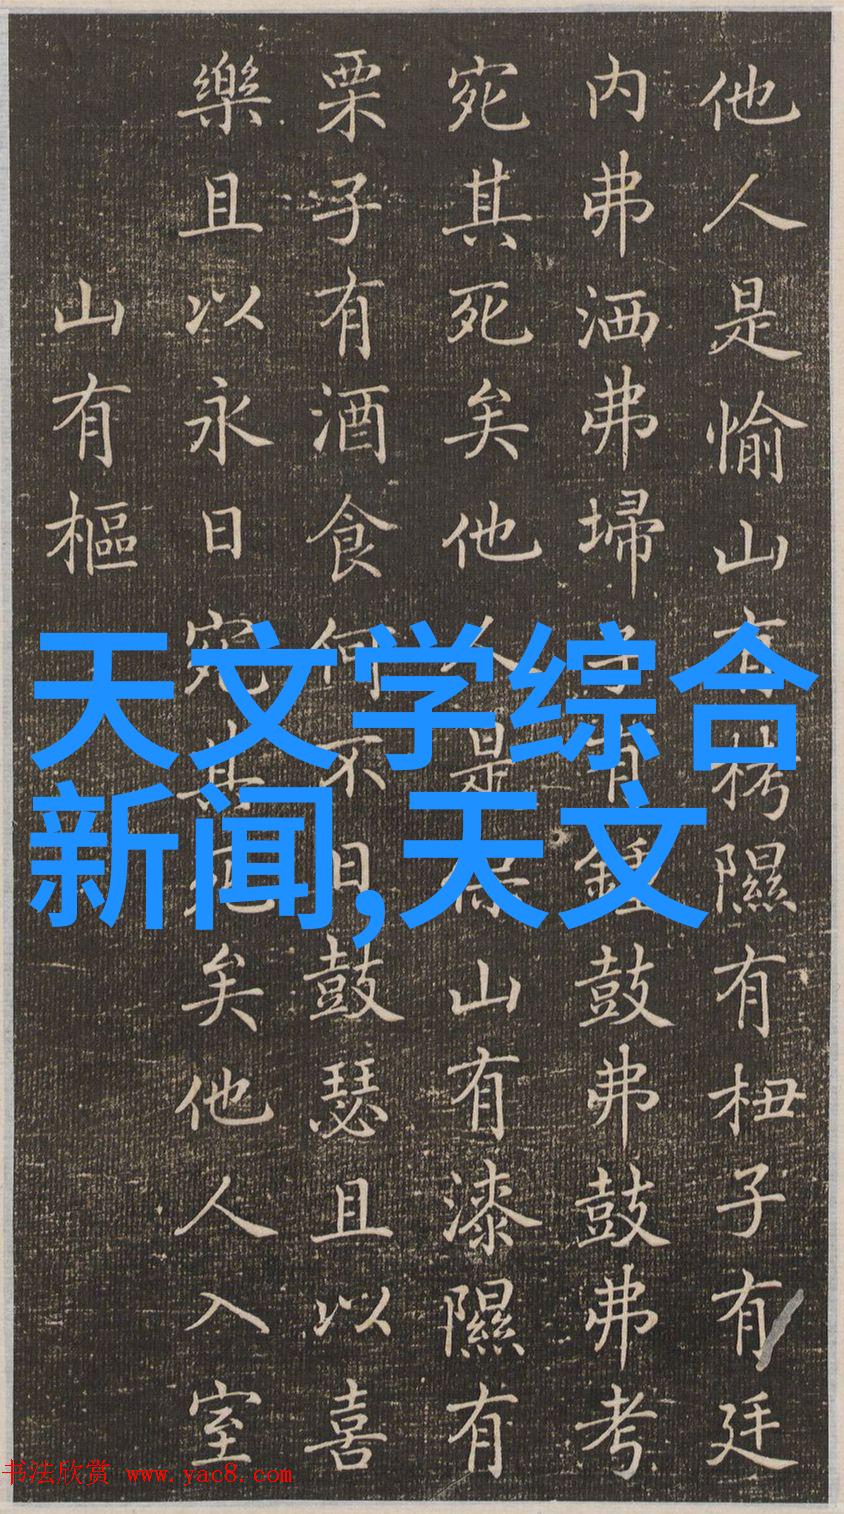 他人是愉山有栲隰有杻子有廷
内弗洒弗埽子有鍾鼓弗鼓弗考
宛其死矣他人是保山有漆隰有
栗子有酒食何不日鼓瑟且以喜
樂且以永日宛其死矣他人入室
山有樞
天文学综合
新闻,天文
书法欣赏 www.yac8.com